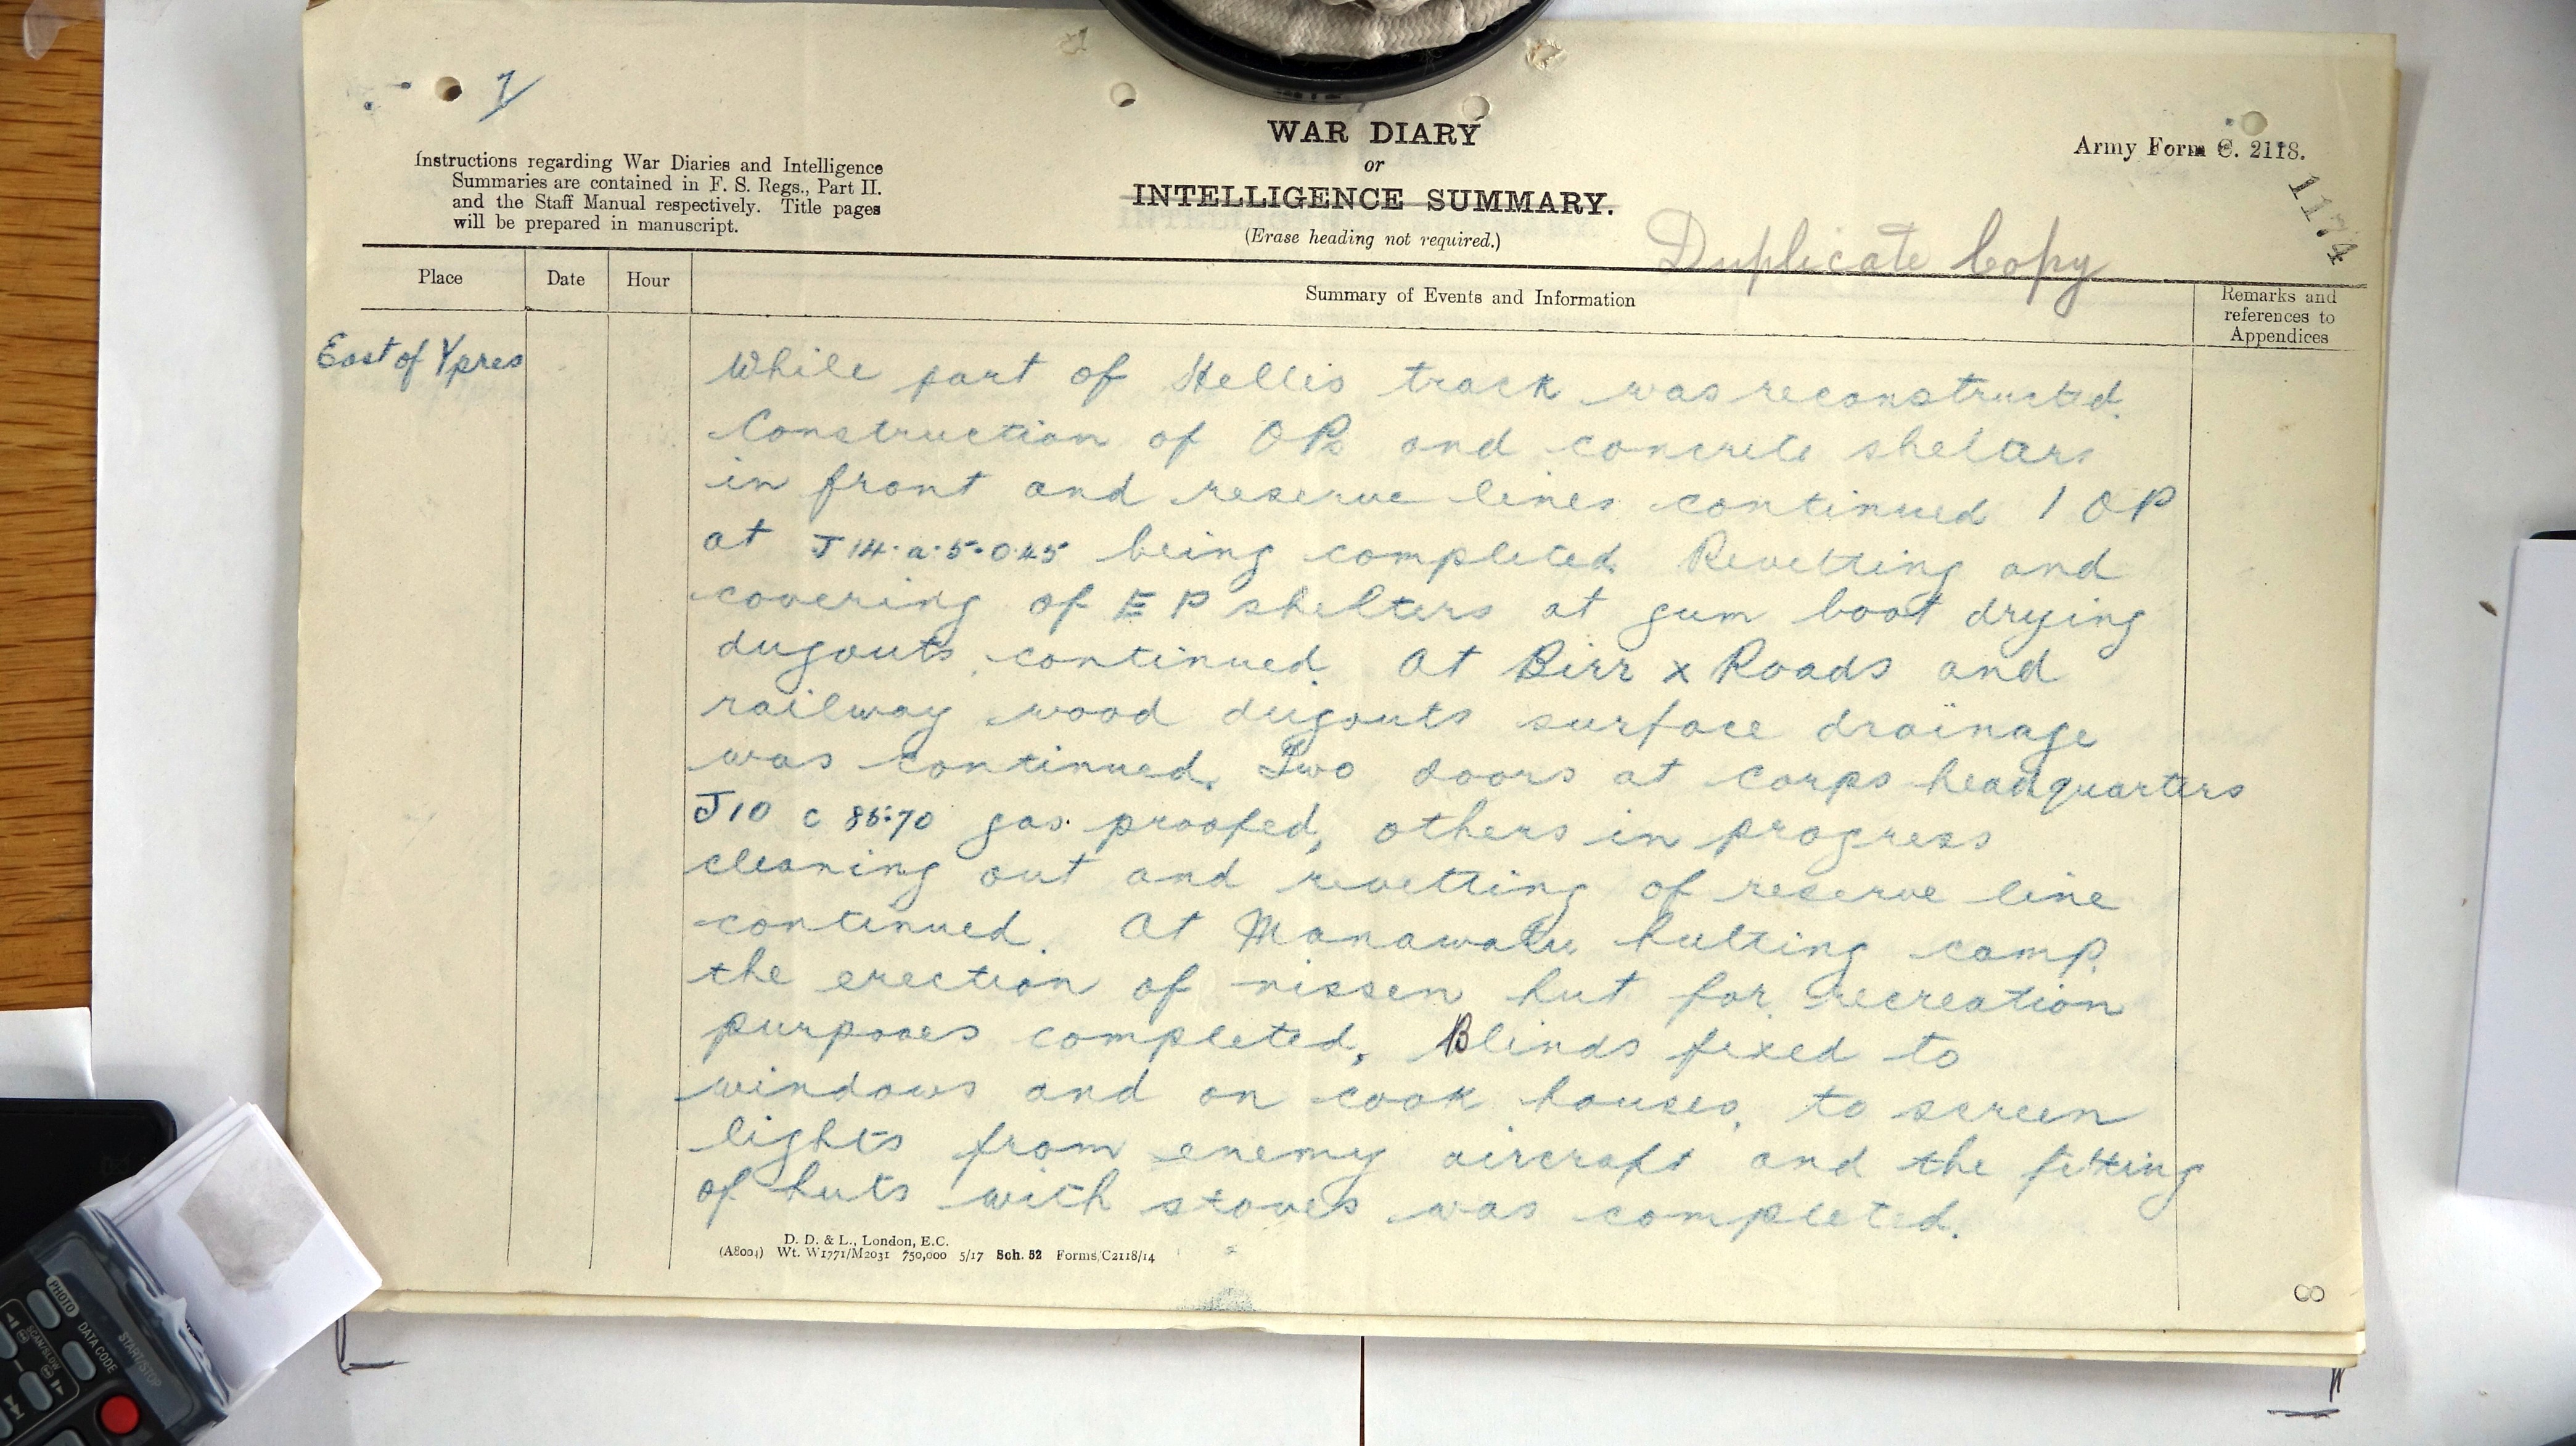 7
WAR DIARY
or
INTELLIGENCE SUMMARY.
(Erase heading not required.)
Instructions regarding War Diaries and Intelligence
Summaries are contained in F. S. Regs., Part II.
and the Staff Manual respectively. Title pages
will be prepared in manuscript.
Army Form C. 2118.
1174
Duplicate Copy
Place
Date
Hour
Summary of Events and Information
Remarks and
references to
Appendices
East of Ypres
While part of Helles track was reconstructed.
Construction of OPs and concrete shelters
in front and reserve lines continued 1 OP
at J 14.a.5.0.45 being completed. Revetting and
covering of E P shelters at gum boot drying
dugouts continued. At Birr x Roads and
railway wood dugouts surface drainage
was continued. Two doors at corps headquarters
J10 c 85.70 gas proofed, others in progress
cleaning out and revetting of reserve line
continued. At Manawatu hutting camp
the erection of nissen hut for recreation
purposes completed, Blinds fixed to
windows and on cook houses, to screen
lights from enemy aircraft and the fitting
of huts with stoves was completed.
D. D. & L., London, E.C.
(A8004) Wt. W1771/M2031 750,000 5/17 Sch. 52 Forms/C2118/14
8
PHOTO
SCAN/SLOW
DATA CODE
START/STOP